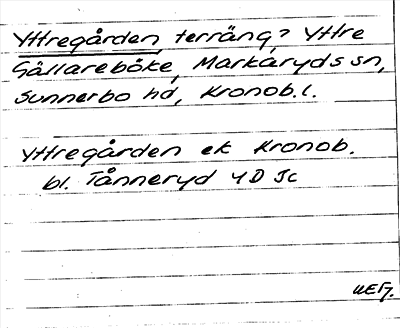 Yttregården terräng? Yttre
Gållareböke, Markaryds sn,
Sunnerbo hd, Kronob.l.
Yttregården ek Kronob.
bl. Tånneryd 4D 5c